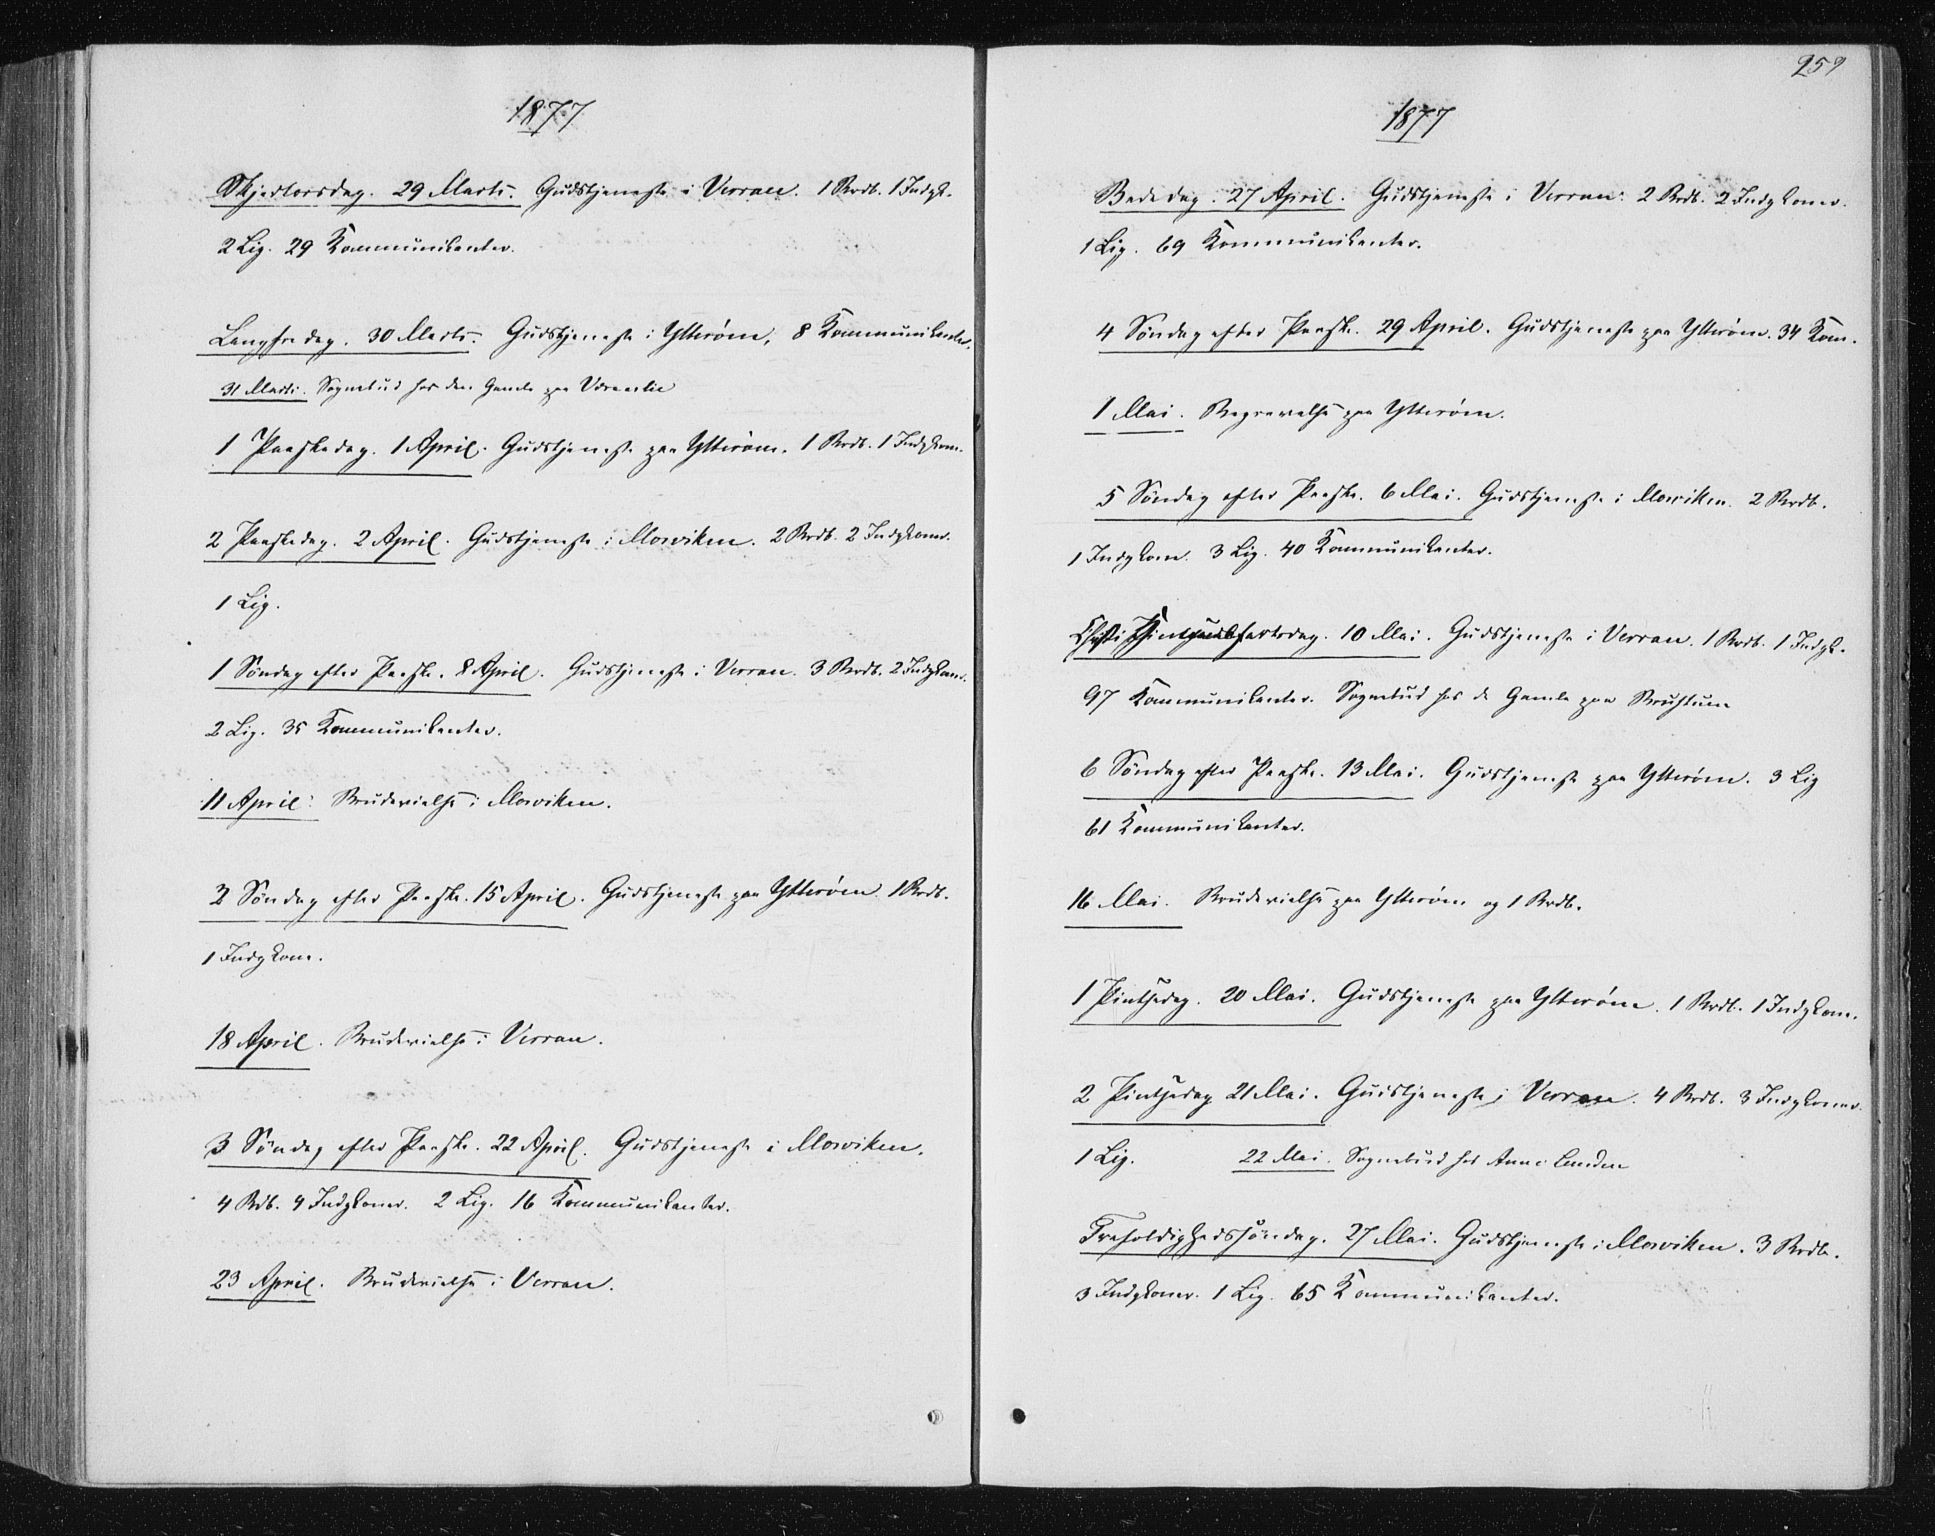 1877
Skjertorsdag. 29 Marts. Gudstjeneste i Verran. 1 Brdb. 1 Indgk.
2 Lig. 29 Kommunikanter.
Langfredag. 30 Marts. Gudstjeneste i Ytterøen. 8 Kommunikanter.
31 Marts. Sognebud hos den Gamle paa
1 Paaskedag. 1 April. Gudstjeneste paa Ytterøen. 1 Brdb. 1 Indgkone.
2 Paaskedag. 2 April. Gudstjeneste i Mosviken. 2 Brdb. 2 Indgkoner.
1 Lig.
1 Søndag efter Paaske. 8 April. Gudstjeneste i Verran. 3 Brdb. 2 Indgkoner.
2 Lig. 35 Kommunikanter.
11 April. Brudevielse i Mosviken.
2 Søndag efter Paaske. 15 April. Gudstjeneste paa Ytterøen. 1 Brdb.
1 Indgkone.
18 April. Brudevielse i Verran.
3 Søndag efter Paaske. 22 April. Gudstjeneste i Mosviken.
4 Brdb. 4 Indgkoner. 2 Lig. 16 Kommunikanter.
23 April. Brudevielse i Verran.
259
1877
Bededag. 27 April. Gudstjeneste i Verran. 2 Brdb. 2 Indgkoner.
1 Lig. 69 Kommunikanter.
4 Søndag efter Paaske. 29 April. Gudstjeneste paa Ytterøen. 34 Kom.
1 Mai. Begravelse paa Ytterøen.
5 Søndag efter Paaske. 6 Mai. Gudstjeneste i Mosviken. 2 Brdb.
1 Indgkone. 3 Lig. 40 Kommunikanter.
Christi Himmelfartsdag. 10 Mai. Gudstjeneste i Verran. 1 Brdb. 1 Indgk.
97 Kommunikanter. Sognebud hos de Gamle paa
6 Søndag efter Paaske. 13 Mai. Gudstjeneste paa Ytterøen. 3 Lig
61 Kommunikanter.
16 Mai. Brudevielse paa Ytterøen og 1 Brdb.
1 Pintsedag. 20 Mai. Gudstjeneste paa Ytterøen. 1 Brdb. 1 Indgkone.
2 Pintsedag 21 Mai. Gudstjeneste i Verran. 4 Brdb. 3 Indgkoner.
1 Lig. 22 Mai. Sognebud hos Anne
Trefoldighedssøndag. 27 Mai. Gudstjeneste i Mosviken. 3 Brdb.
3 Indgkoner. 1 Lig. 65 Kommunikanter.